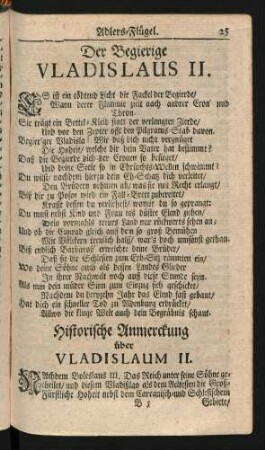 Adlers-Flügel. 25
Der Begierige
VLADISLAUS II.
ES ist ein tödtend Licht die Fackel der Begierde/
Wann derer Flamme zielt nach andrer Cron' und
Thron.
Sie trägt ein Bettel-Kleid statt der verlangten Zierde/
Und vor den Zepter offt den Pilgrams-Stab davon.
Begier'ger Vladisla! Wie daß dich nicht vergnüget
Die Hoheit/ welche dir dein Vater hat bestimmt?
Daß die Begierde sich der Cronen so besieget/
Und deine Seele so in Ehrsuchts-Wellen schwimmt?
Du wilst nachdem hierzu dein Eh-Schatz dich verleitet/
Den Brüdern nehmen ab/ was sie mit Recht erlangt/
Biß dir zu Posen wird ein Fall-Bret zubereitet/
Krafft dessen du verliehrst/ wornach du so geprangt.
Du must nebst Kind und Frau ins düstre Elend gehen/
Dein vormahls treues Land nur rückwerts sehen an:
Und ob dir Conrad gleich auf den so groß Bemühen
Mit Völckern treulich halff/ war's doch umsonst gethan.
Biß endlich Barbaross' erweichte deine Brüder/
Daß sie die Schlesien zum Erb-Sitz räumten ein/
Wo deine Söhne auch als dessen Landes Glieder
In ihrer Nachwelt noch auf diese Stunde seyn.
Als nun dein müder Sinn zum Einzug sich geschicket/
Nachdem du dreyzehn Jahr das Elend hast gebaut/
Hat dich ein schneller Tod zu Altenburg erdrücket/
Allwo die kluge Welt auch dein Begräbnis schaut.
Historische Anmerckung
über
VLADISLAUM II.
NAchdem Boleslaus III. Das Reich unter seine Söhne ge-
theilet/ und diesem Vladislao als dem Aeltesten die Groß-
Fürstliche Hoheit nebst dem Cracauisch-und Schlesischem
Gebiete/